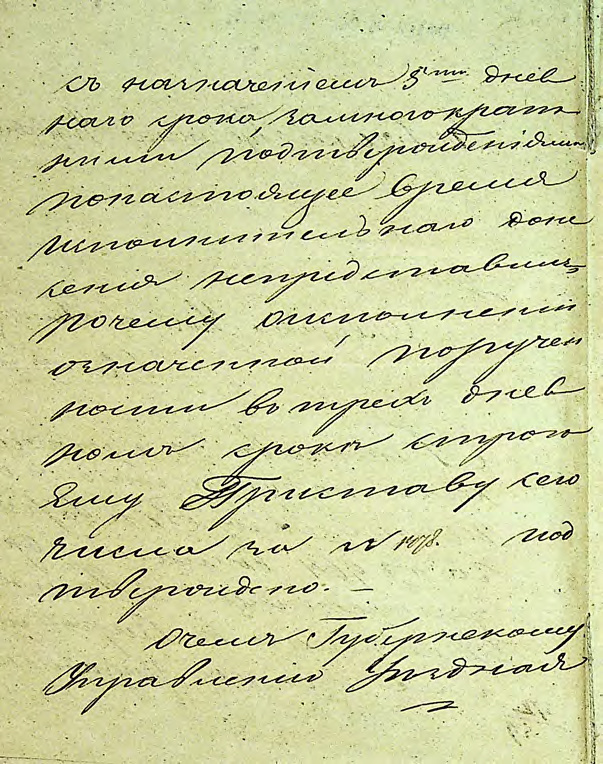 съ назначеніемъ 5ти днев
наго срока замногократ
ными подтвержденіями
понастоящее время
исполнительнаго доне
сенія непредставилъ,
почему оисполненіи
означенной поручен
ности въ трехъ днев
номъ срокѣ строго
Ему Приставу сего
числа за № 1478. под
тверждено. —
Очемъ Губернскому
Управленію Уѣздная